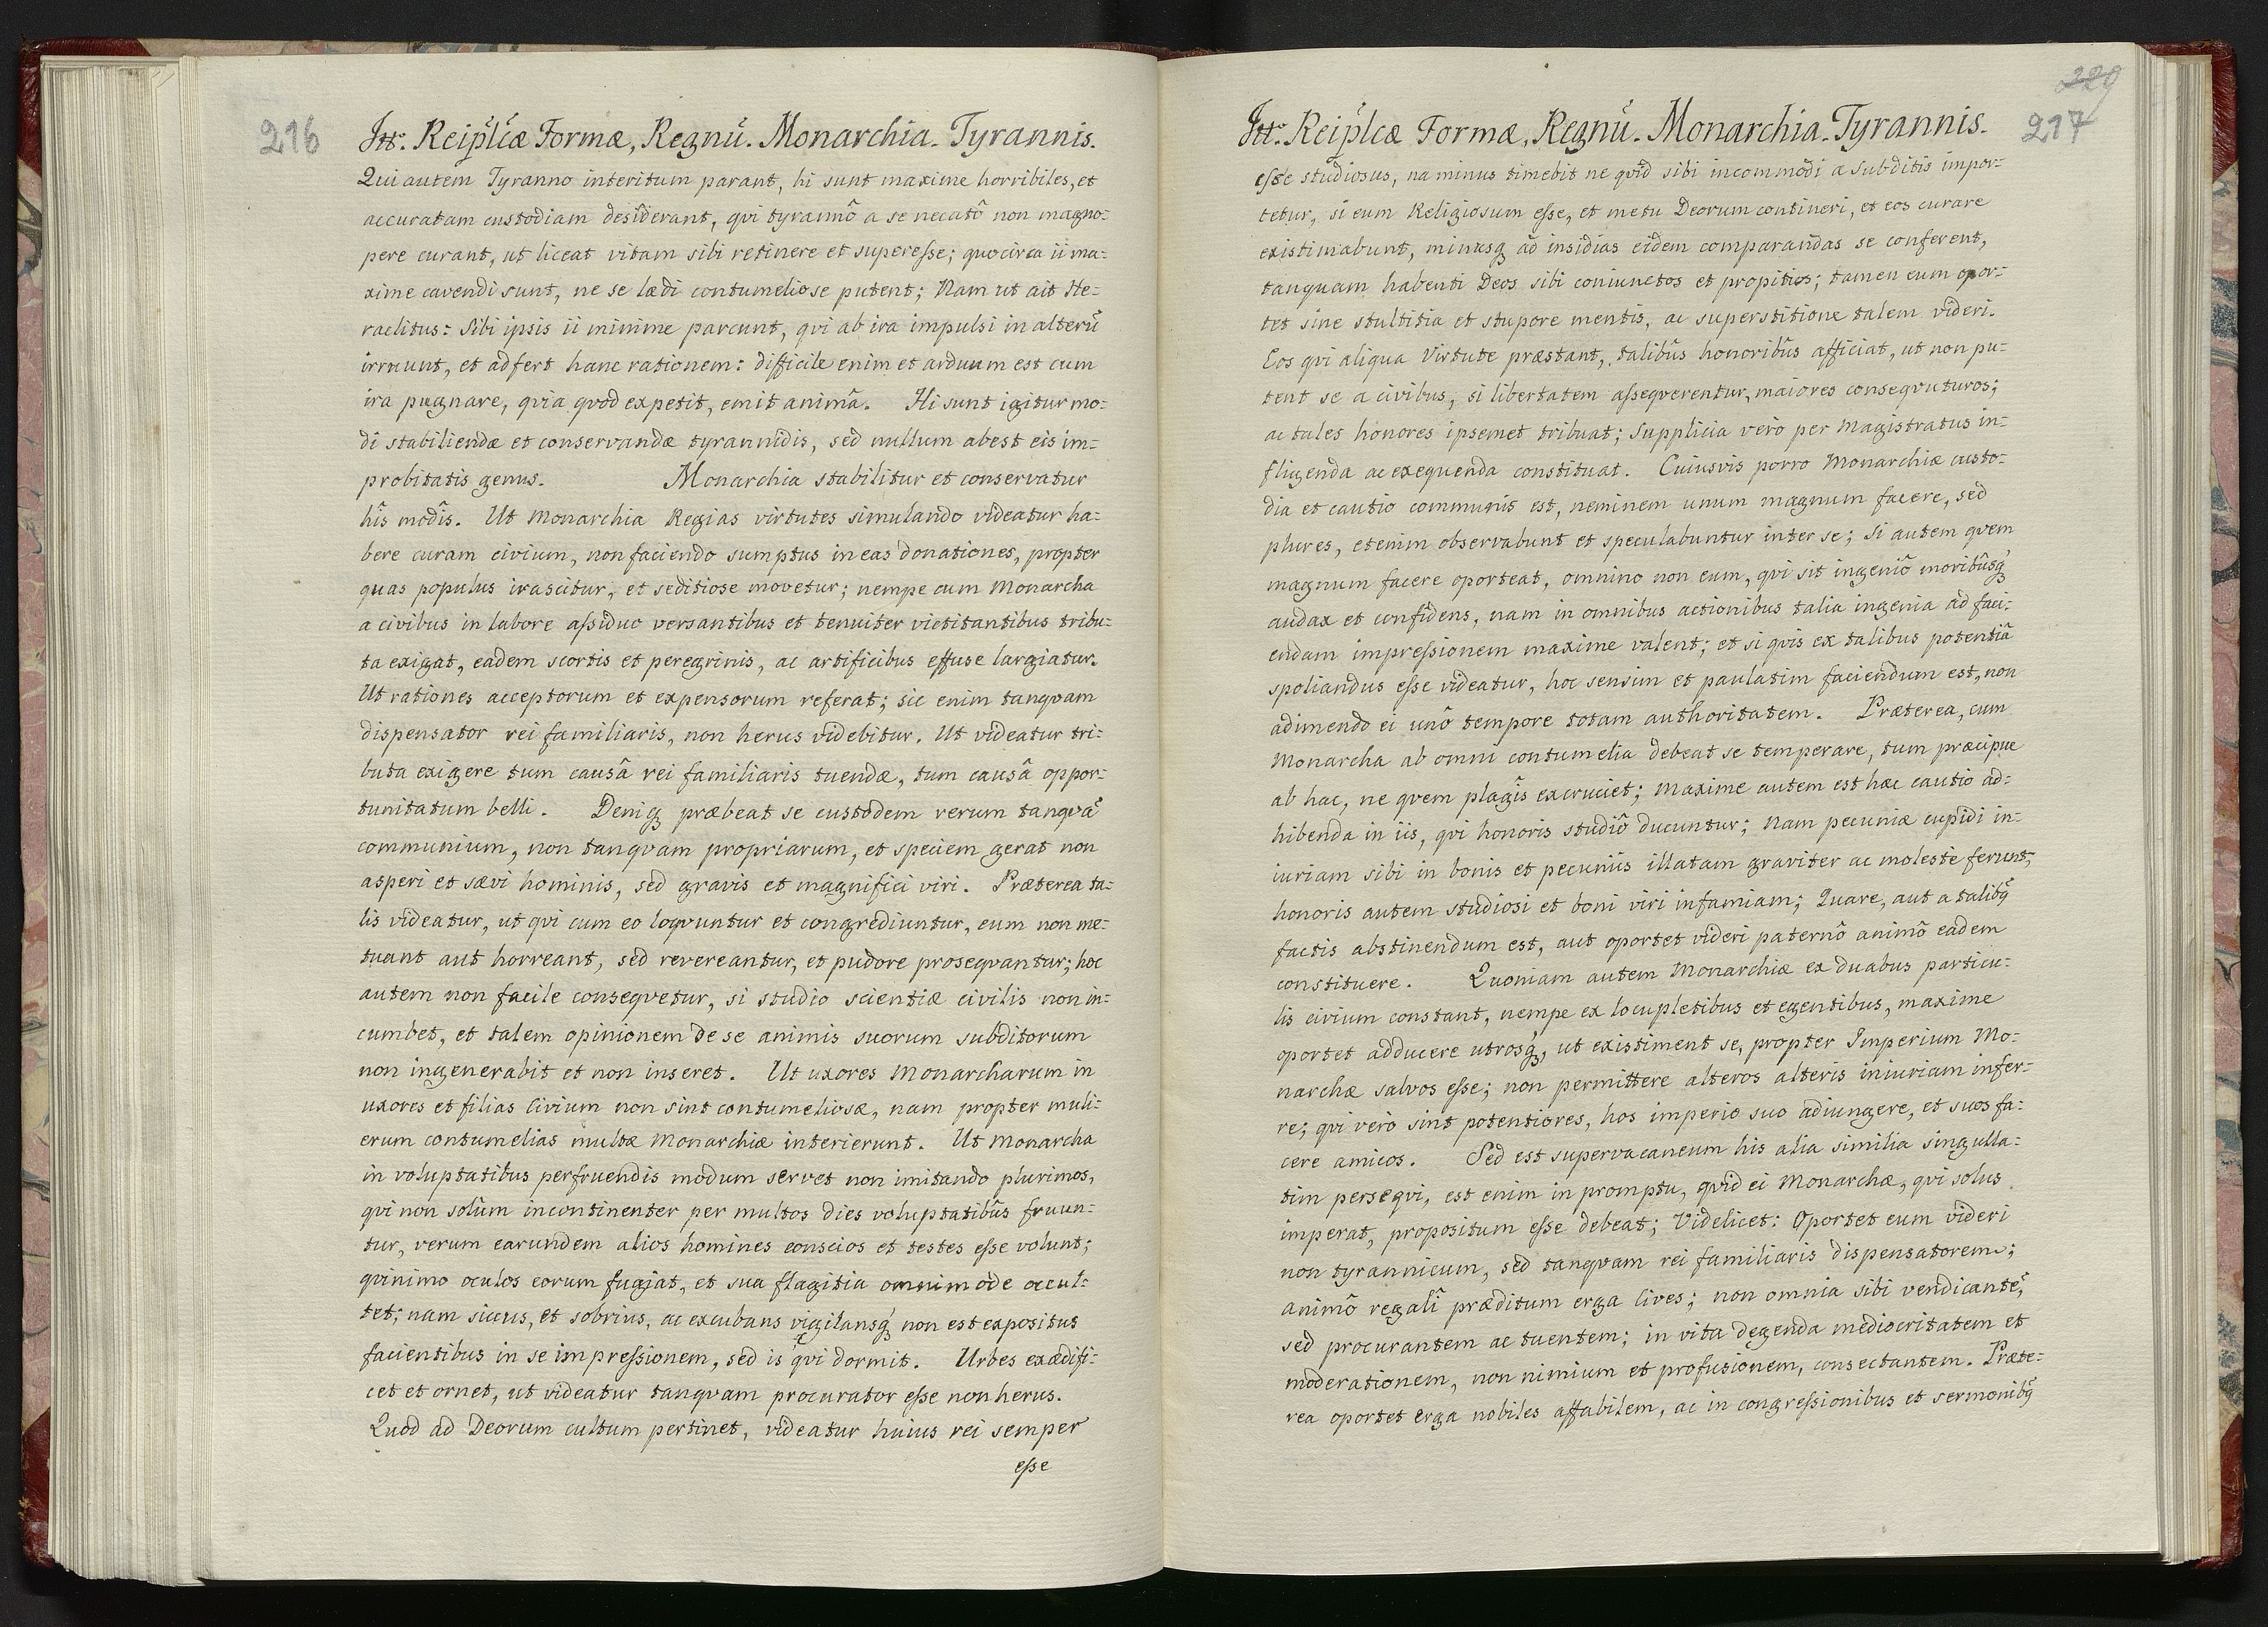 216
Itr. Reiplcæ Formæ, Regnū. Monarchia. Tyrannis.
Qui autem Tyranno interitum parant, hi sunt maxime horribiles, et
accuratam custodiam desiderant, qvi tyrannô a se necatô non magno=
pere curant, ut liceat vitam sibi retinere et superesse; quocirca ii ma=
xime cavendi sunt, ne se lædi contumeliose putent; Nam ut ait He=
raclitus: Sibi ipsis ii minime parcunt, qvi ab ira impulsi in alterū
irruunt, et adfert hanc rationem: difficile enim et arduum est cum
ira pugnare, qvia qvod expetit, emit animâ. Hi sunt igitur mo=
di stabiliendæ et conservandæ tyrannidis, sed nullum abest eis im=
probitatis genus. Monarchia stabilitur et conservatur
hîs modîs. Ut Monarchia Regias virtutes simulando videatur ha=
bere curam civium, non faciendo sumptus in eas donationes, propter
quas populus irascitur, et seditiose movetur; nempe cum Monarcha
a civibus in labore assiduo versantibus et tenuiter victitantibus tribu=
ta exigat, eadem scortis et peregrinis, ac artificibus effuse largiatur.
Ut rationes acceptorum et expensorum referat; sic enim tanqvam
dispensator rei familiaris, non herus videbitur. Ut videatur tri=
buta exigere tum causâ rei familiaris tuendæ, tum causâ oppor=
tunitatum belli. Deniqȝ præbeat se custodem rerum tanqvā
communium, non tanqvam propriarum, et speciem gerat non
asperi et sævi hominis, sed gravis et magnifici viri. Præterea ta=
lis videatur, ut qvi cum eo loqvuntur et congrediuntur, eum non me=
tuant aut horreant, sed revereantur, et pudore proseqvantur; hoc
autem non facile conseqvetur, si studio scientiæ civilis non in=
cumbet, et talem opinionem de se animis suorum subditorum
non ingenerabit et non inseret. Ut uxores Monarcharum in
uxores et filias Civium non sint contumeliosæ, nam propter muli=
erum contumelias multæ Monarchiæ interierunt. Ut Monarcha
in voluptatibus perfruendis modum servet non imitando plurimos,
qvi non solùm incontinenter per multos dies voluptatibûs fruun=
tur, verum earundem alios homines conscios et testes esse volunt;
qvinimo oculos eorum fugiat, et sua flagitia omnimode occul=
tet; nam siccus, et sobrius, ac excubans vigilansqȝ non est expositus
facientibus in se impressionem, sed is qvi dormit. Urbes exædifi=
cet et ornet, ut videatur tanqvam procurator esse non herus.
Quod ad Deorum cultum pertinet, videatur huius rei semper
esse
229
217
Itr. Reiplcæ Formæ, Regnū. Monarchia. Tyrannis.
esse studiosus, na minus timebit ne qvid sibi incommodi a subditis impor=
tetur, si eum Religiosum esse, et metu Deorum contineri, et eos curare
existimabunt, minusqȝ ad insidias eidem comparandas se conferent,
tanquam habenti Deos sibi coniunctos et propitios; tamen eum opor=
tet sine stultitia et stupore mentis, ac superstitione talem videri.
Eos qvi aliqua Virtute præstant, talibûs honoribûs afficiat, ut non pu=
tent se a civibus, si libertatem asseqverentur, maiores conseqvuturos;
ac tales honores ipsemet tribuat; Supplicia verò per Magistratus in=
fligenda ac exequenda constituat. Cuiusvis porro Monarchiæ custo=
dia et cautio communis est, neminem unum magnum facere, sed
plures, etenim observabunt et speculabuntur inter se; Si autem qvem
magnum facere oporteat, omnino non eum, qvi sit ingeniô moribûsqȝ
audax et confidens, nam in omnibus actionibus talia ingenia ad faci=
endam impressionem maxime valent; et si qvis ex talibus potentiâ
spoliandus esse videatur, hoc sensim et paulatim faciendum est, non
adimendo ei unô tempore totam authoritatem. Præterea, cum
Monarcha ab omni contumelia debeat se temperare, tum præcipue
ab hac, ne qvem plagîs excruciet; Maxime autem est hæc cautio ad=
hibenda in iis, qvi honoris studiô ducuntur; Nam pecuniæ cupidi in=
iuriam sibi in bonis et pecuniis illatam graviter ac moleste ferunt;
honoris autem studiosi et boni viri infamiam; Quare, aut a talibȝ
factis abstinendum est, aut oportet videri paternô animô eadem
constituere. Quoniam autem Monarchiæ ex duabus particu=
lis civium constant, nempe ex locupletibus et egentibus, maxime
oportet adducere utrosqȝ, ut existiment se, propter Imperium Mo=
narchæ salvos esse; non permittere alteros alteris iniuriam infer=
re; qvi verò sint potentiores, hos imperio suo adiungere, et suos fa=
cere amicos. Sed est supervacaneum his alia similia singulla=
tim perseqvi, est enim in promptu, qvid ei Monarchæ, qvi solus
imperat, propositum esse debeat; Videlicet: Oportet eum videri
non tyrannicum, sed tanqvam rei familiaris dispensatorem;
animô regalî præditum erga Cives; non omnia sibi vendicantē,
sed procurantem ac tuentem; in vita degenda mediocritatem et
moderationem, non nimium et profusionem, consectantem. Præte=
rea oportet erga nobiles affabilem, ac in congressionibus et sermonibȝ